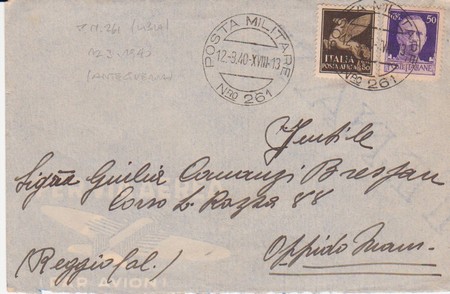 P.M. 261 (LIBIA)
12.3.1940
(ANTEGUERRA)
POSTA MILITARE
12-3.40-XVIII-13
Nro 261
ITALIA
POSTA AEREA
50
POSTE ITALIANE
Nro 261
Gentile
Sig.ra Giulia
Corso L. Razza 88
Oppido Mam.
(Reggio Cal.)
PAR AVION